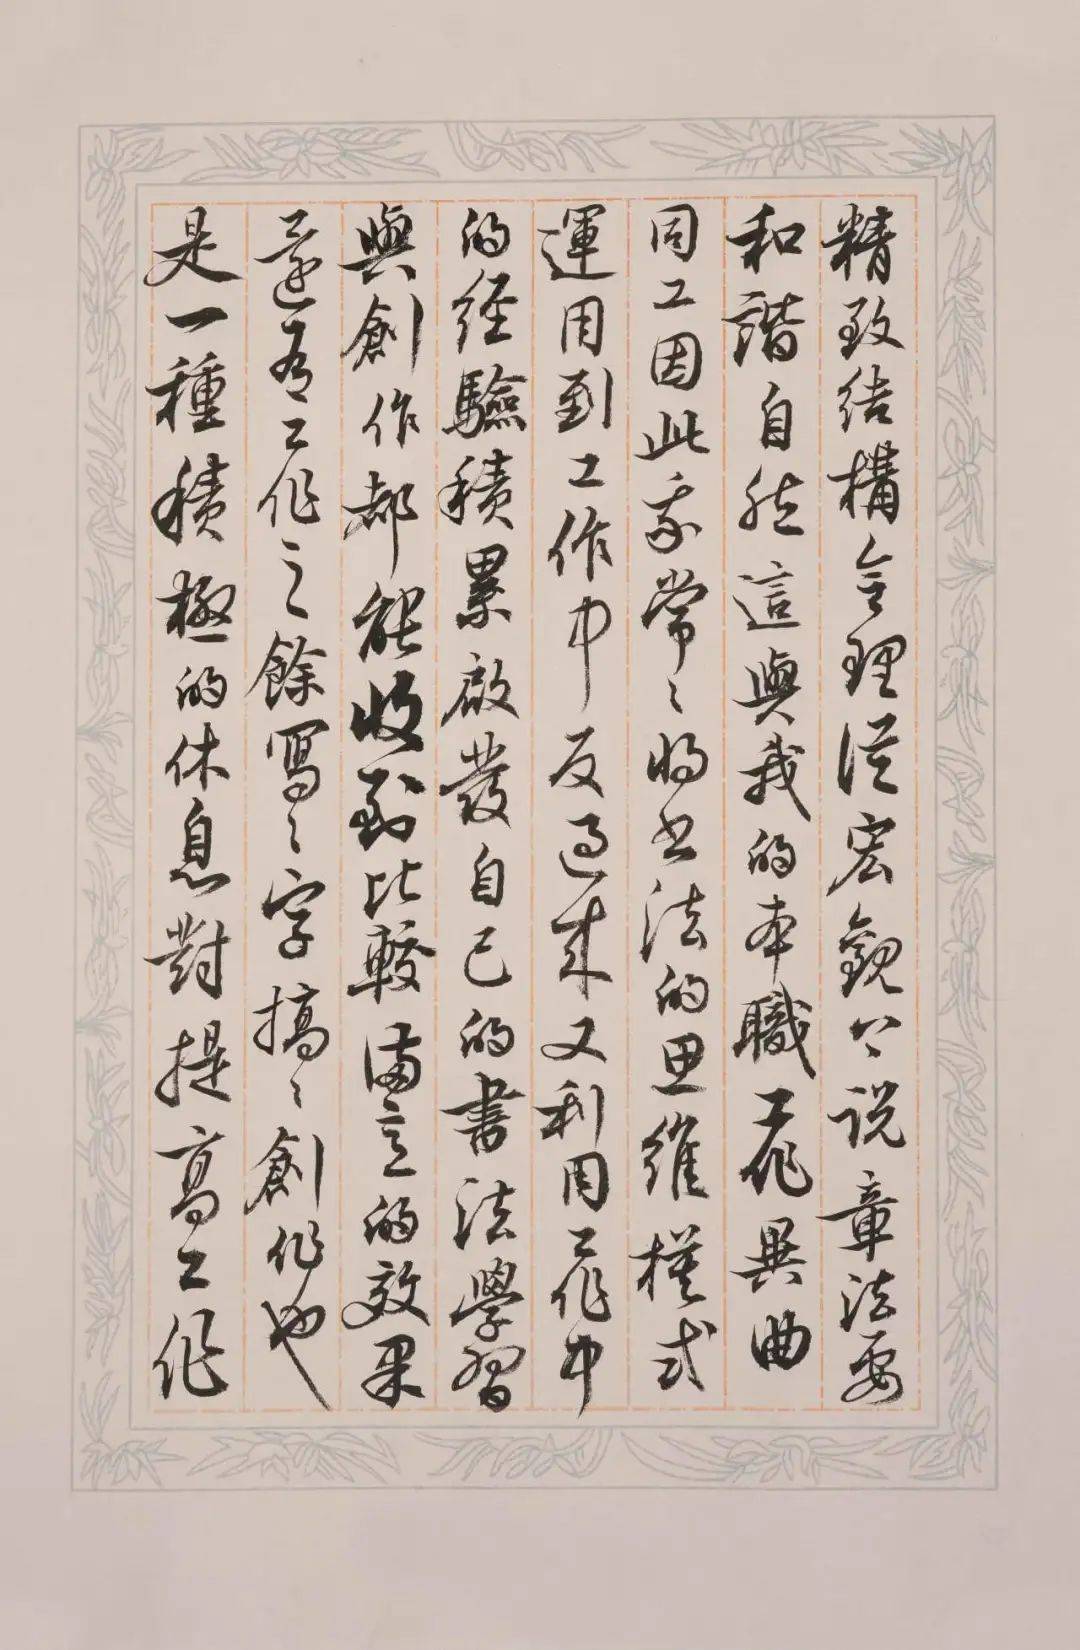 精致结構合理從宏觀上说章法要
和諧自然這與我的本職工作異曲
同工因此我常々將书法的思維模式
運用到工作中反過来又利用工作中
的经驗積累啟發自己的書法學習
與創作都能收到比較满意的效果
還有工作之餘寫々字搞々創作也
是一種積極的休息對提高工作